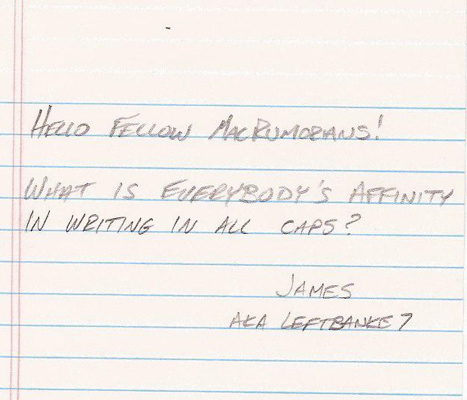 HELLO FELLOW MACRUMORIANS!
WHAT IS EVERYBODY'S AFFINITY
IN WRITING IN ALL CAPS?
JAMES
AKA LEFTBANKE7